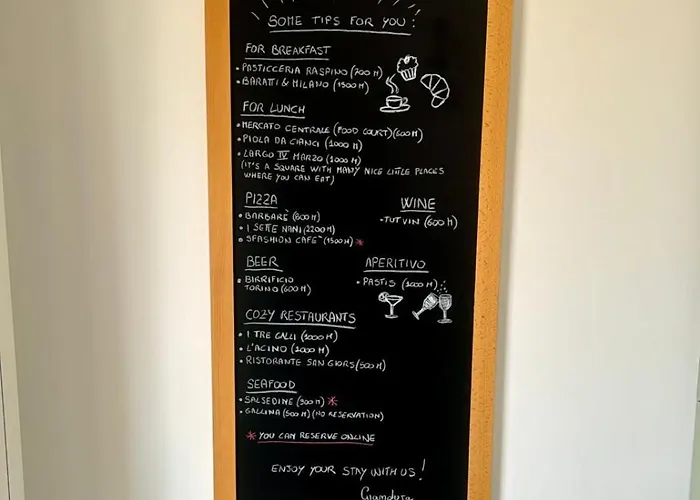 SOME TIPS FOR YOU!
FOR BREAKFAST
• PASTICCERIA RASPINO (700 M)
• BARATTI & MILANO (1500 M)
FOR LUNCH
• MERCATO CENTRALE (FOOD COURT) (600 M)
• PIOLA DA CIANCI (1000 M)
• LARGO IV MARZO (1000 M)
(IT'S A SQUARE WITH MANY NICE LITTLE PLACES
WHERE YOU CAN EAT)
PIZZA
• BARBARÈ (600 M)
• I SETTE NANI (2200 M)
• SFASHION CAFÈ (1500 M) *
WINE
• TUTVIN (600 M)
BEER
• BIRRIFICIO
TORINO (600 M)
APERITIVO
• PASTIS (1000 M)
COZY RESTAURANTS
• I TRE GALLI (1000 M)
• L'ACINO (1000 M)
• RISTORANTE SAN GIORS (500 M)
SEAFOOD
• SALSEDINE (500 M) *
• GALLINA (500 M) (NO RESERVATION)
* YOU CAN RESERVE ONLINE
ENJOY YOUR STAY WITH US!